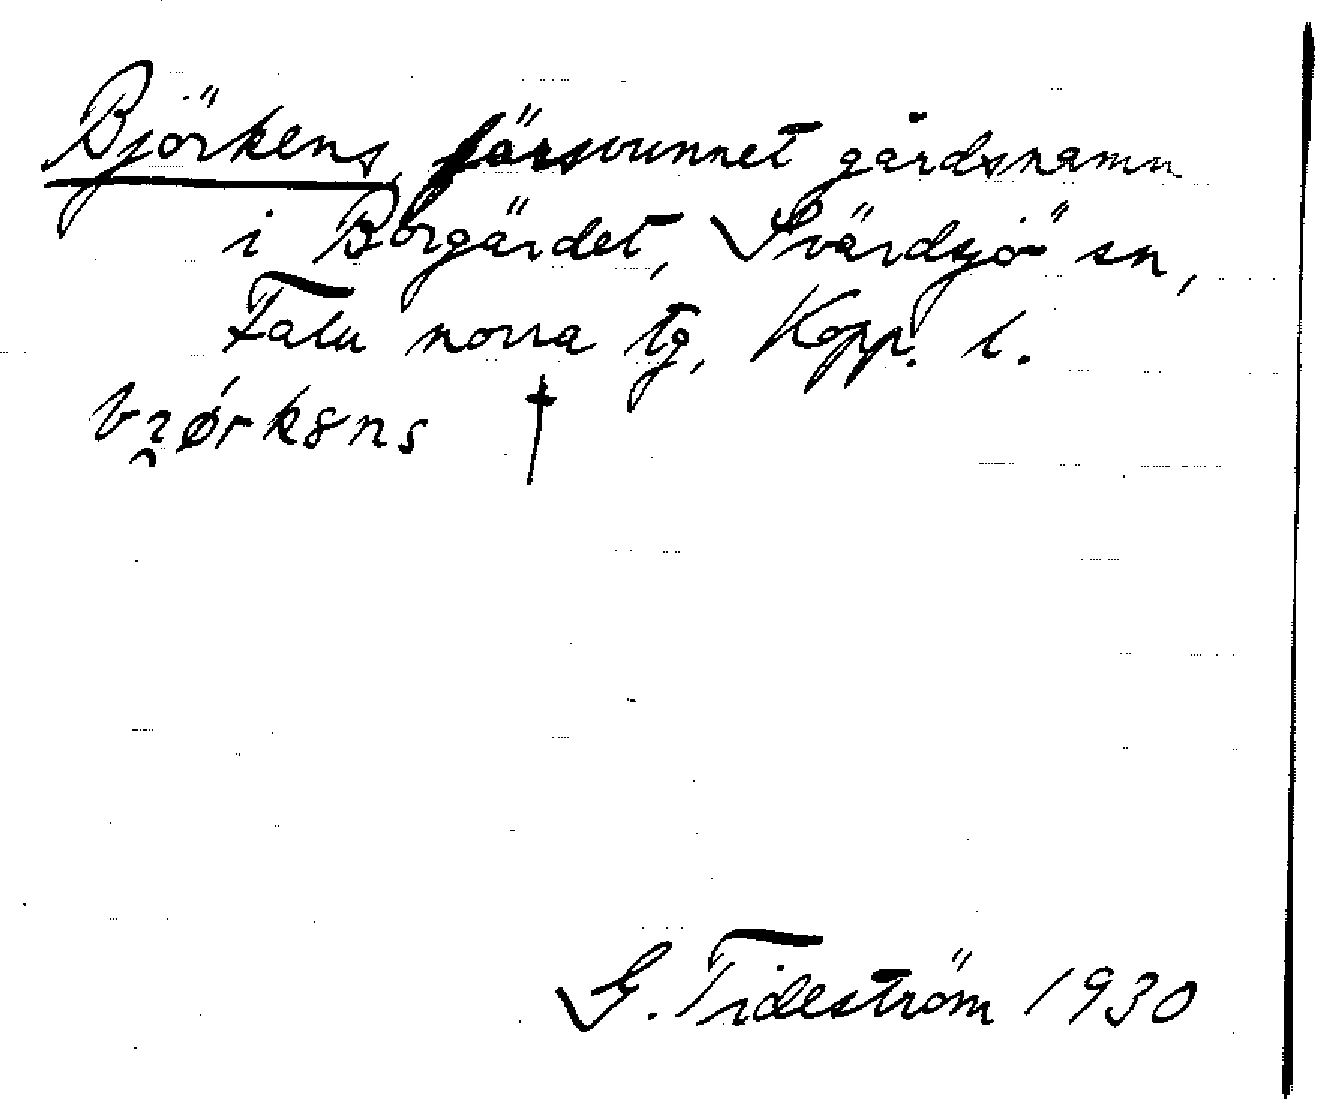 Björkens, försvunnet gårdsnamn
i Borgärdet, Svärdsjö sn,
Falu norra tg, Kopp. l.
†
G. Tideström 1930